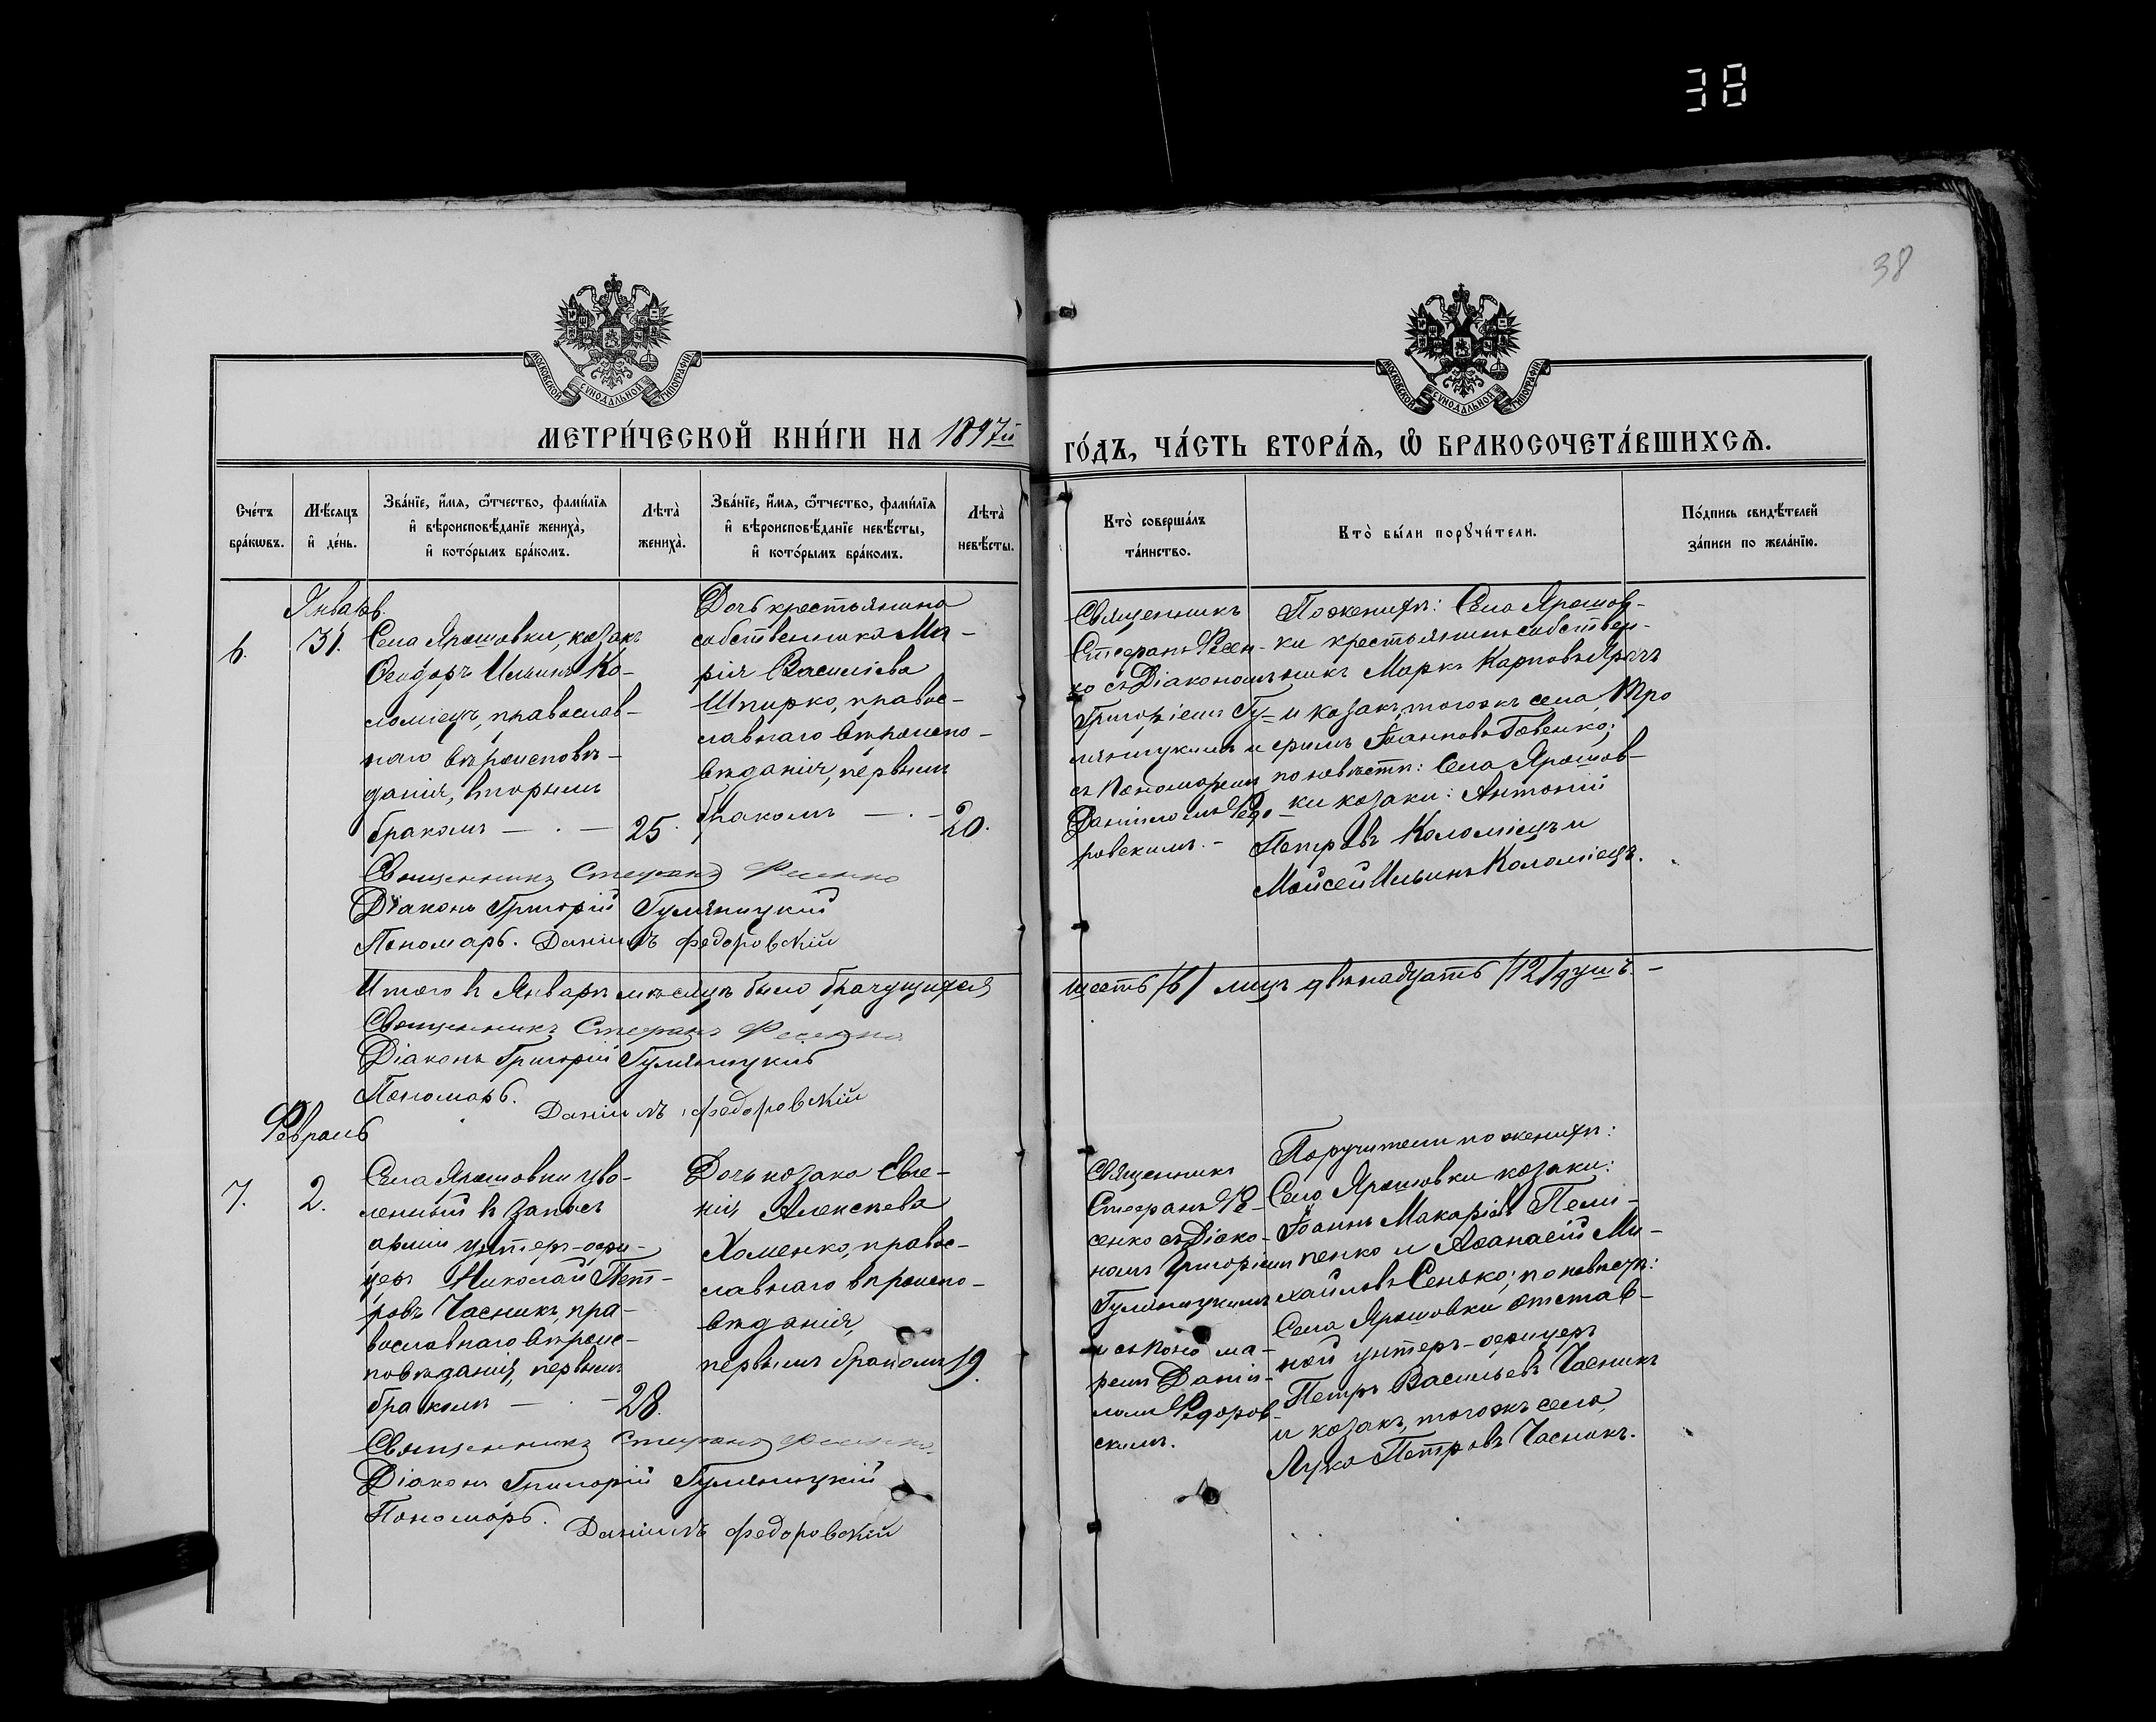 38
38
МОСКОВСКОЙ СѴНОДАЛЬНОЙ ТИПОГРАФІИ
МОСКОВСКОЙ СѴНОДАЛЬНОЙ ТИПОГРАФІИ
МЕТРИ́ЧЕСКОЙ КНИ́ГИ НА 1897й
ГО́ДЪ, ЧА́СТЬ ВТОРА́Ѧ, Ѡ҆ БРАКОСОЧЕТА́ВШИХСѦ.
Сче́тъ бра́кѡвъ.
Мѣ́сяцъ и҆ де́нь.
Зва́нїе, и҆́мя, ѻ҆́тчество, фами́лїя и҆ вѣроисповѣ́данїе жениха̀, и҆ кото́рымъ бра́комъ.
Лѣта̀ жениха̀.
Зва́нїе, и҆́мя, ѻ҆́тчество, фами́лїя и҆ вѣроисповѣ́данїе невѣ́сты, и҆ кото́рымъ бра́комъ.
Лѣта̀ невѣ́сты.
Кто̀ соверша́лъ та́инство.
Кто̀ бы́ли порꙋчи́тели.
По́дпись свидѣ́телей за́писи по жела́нїю.
Январь.
6.
31.
Села Ярошовки, козакъ
Ѳеодоръ Ильинъ Ко-
ломіецъ, православ-
наго вѣроисповѣ-
данія, вторымъ
бракомъ — . —
25.
Дочь крестьянина
собственника Ма-
рія Василіева
Шпирко, правос-
лавнаго вѣроиспо-
вѣданія, первымъ
бракомъ — . —
20.
Священникъ
Стефанъ Фесен-
ко съ Діакономъ
Григоріемъ Гу-
ляницкимъ и
съ Пономаремъ
Даніиломъ Ѳедо-
ровскимъ. -
По женихѣ: Села Ярошов-
ки крестьянинъ собствен-
никъ Маркъ Карповъ
и козакъ, тогожъ села, Тро
фимъ Іоанновъ Говенко;
по невѣстѣ: Села Ярошов-
ки козаки: Антоній
Петровъ Коломіецъ и
Мойсей Ильинъ Коломіецъ.
Священникъ Стефанъ Фесенко
Діаконъ Григорій Гуляницкій
Пономарь. Даніилъ Федоровскій
Итого въ Январѣ мѣсяцѣ было брачущихся
шесть /6/ лицъ двѣнадцать /12/ душъ. -
Священникъ Стефанъ Фесенко
Діаконъ Григорій Гуляницкій
Пономарь. Даніилъ Федоровскій
Февраль
7.
2.
Села Ярошовки уво-
ленный въ запасъ
арміи унтеръ-офи-
церъ Николай Пет-
ровъ Часникъ, пра-
вославнаго вѣроис-
повѣданія, первымъ
бракомъ — . —
28.
Дочь козака Евге-
нія Алексѣева
Хоменко, правос-
лавнаго вѣроиспо-
вѣданія,
первымъ бракомъ
19.
Священникъ
Стефанъ Фе-
сенко съ Діако-
номъ Григоріемъ
Гуляницкимъ
и съ Поно ма-
ремъ Даніи-
ломъ Ѳедоров-
скимъ.
Поручители по женихѣ:
Села Ярошовки козаки:
Іоаннъ Макаріевъ Пели-
пенко и Аѳанасій Ми-
хайловъ Сенько; по невѣстѣ:
Села Ярошовки отстав-
ной унтеръ-офицеръ
Петръ Васильевъ Часникъ
и козакъ, тогожъ села,
Лука Петровъ Часникъ.
Священникъ Стефанъ Фесенко.
Діаконъ Григорій Гуляницкій
Пономарь. Даніилъ Федоровскій